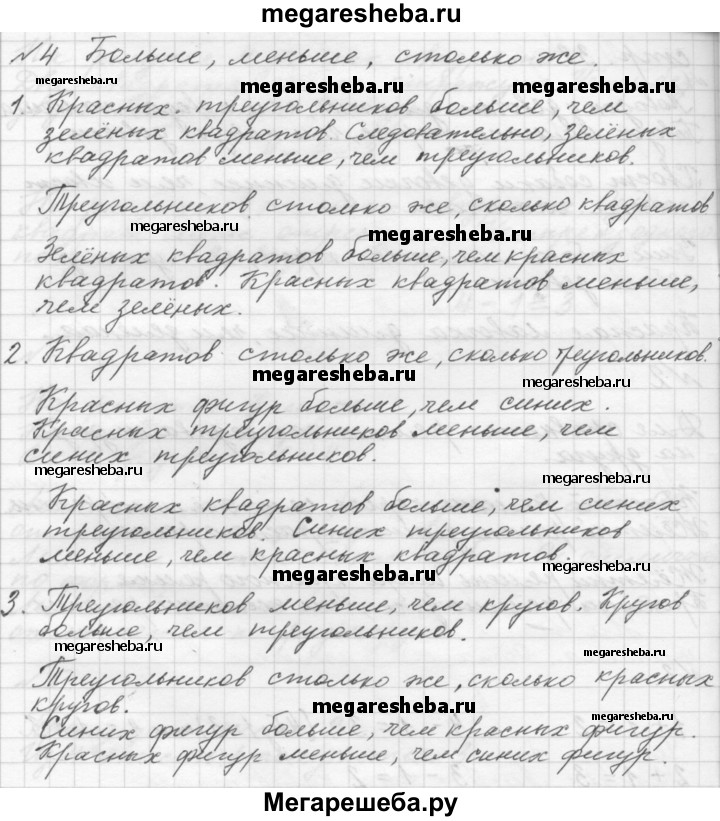 megaresheba.ru
№4 Больше, меньше, столько же.
megaresheba.ru
megaresheba.ru
megaresheba.ru
1. Красных треугольников больше, чем
зелёных квадратов. Следовательно, зелёных
квадратов меньше, чем треугольников.
Треугольников столько же, сколько квадратов
megaresheba.ru
megaresheba.ru
Зелёных квадратов больше, чем красных
квадратов. Красных квадратов меньше,
чем зелёных.
2. Квадратов столько же, сколько треугольников.
megaresheba.ru
megaresheba.ru
Красных фигур больше, чем синих.
Красных треугольников меньше, чем
синих треугольников.
megaresheba.ru
megaresheba.ru
Красных квадратов больше, чем синих
треугольников. Синих треугольников
меньше, чем красных квадратов.
megaresheba.ru
3. Треугольников меньше, чем кругов. Кругов
больше, чем треугольников.
megaresheba.ru
megaresheba.ru
Треугольников столько же, сколько красных
кругов.
megaresheba.ru
megaresheba.ru
Синих фигур больше, чем красных фигур.
Красных фигур меньше, чем синих фигур.
Мегарешеба.ру